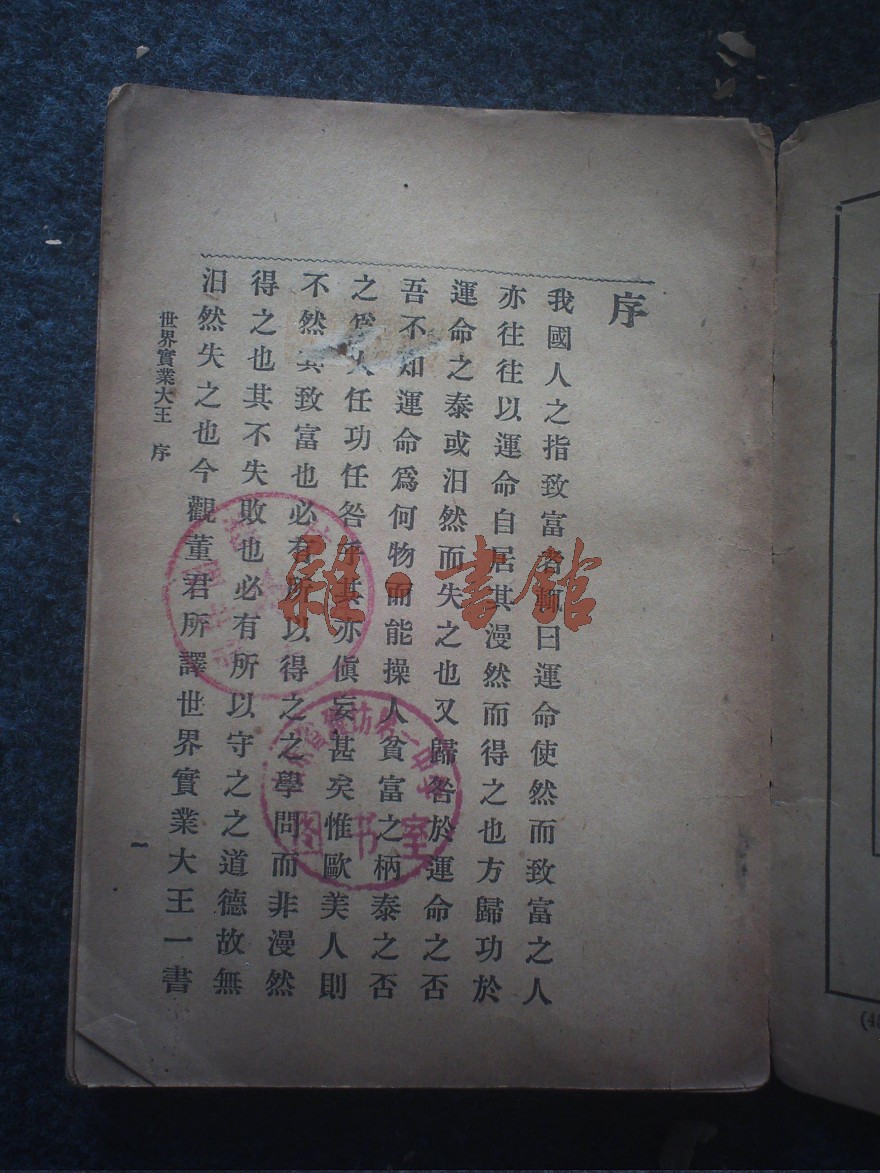 序
我國人之指致富者輒曰運命使然而致富之人
亦往往以運命自居其漫然而得之也方歸功於
運命之泰或汨然而失之也又歸咎於運命之否
吾不知運命爲何物而能操人貧富之柄泰之否
之爲人任功任咎乎其亦傎妄甚矣惟歐美人則
不然其致富也必有所以得之之學問而非漫然
得之也其不失敗也必有所以守之之道德故無
汨然失之也今觀董君所譯世界實業大王一書
世界實業大王 序
一
雜·書館
第一中
图书室